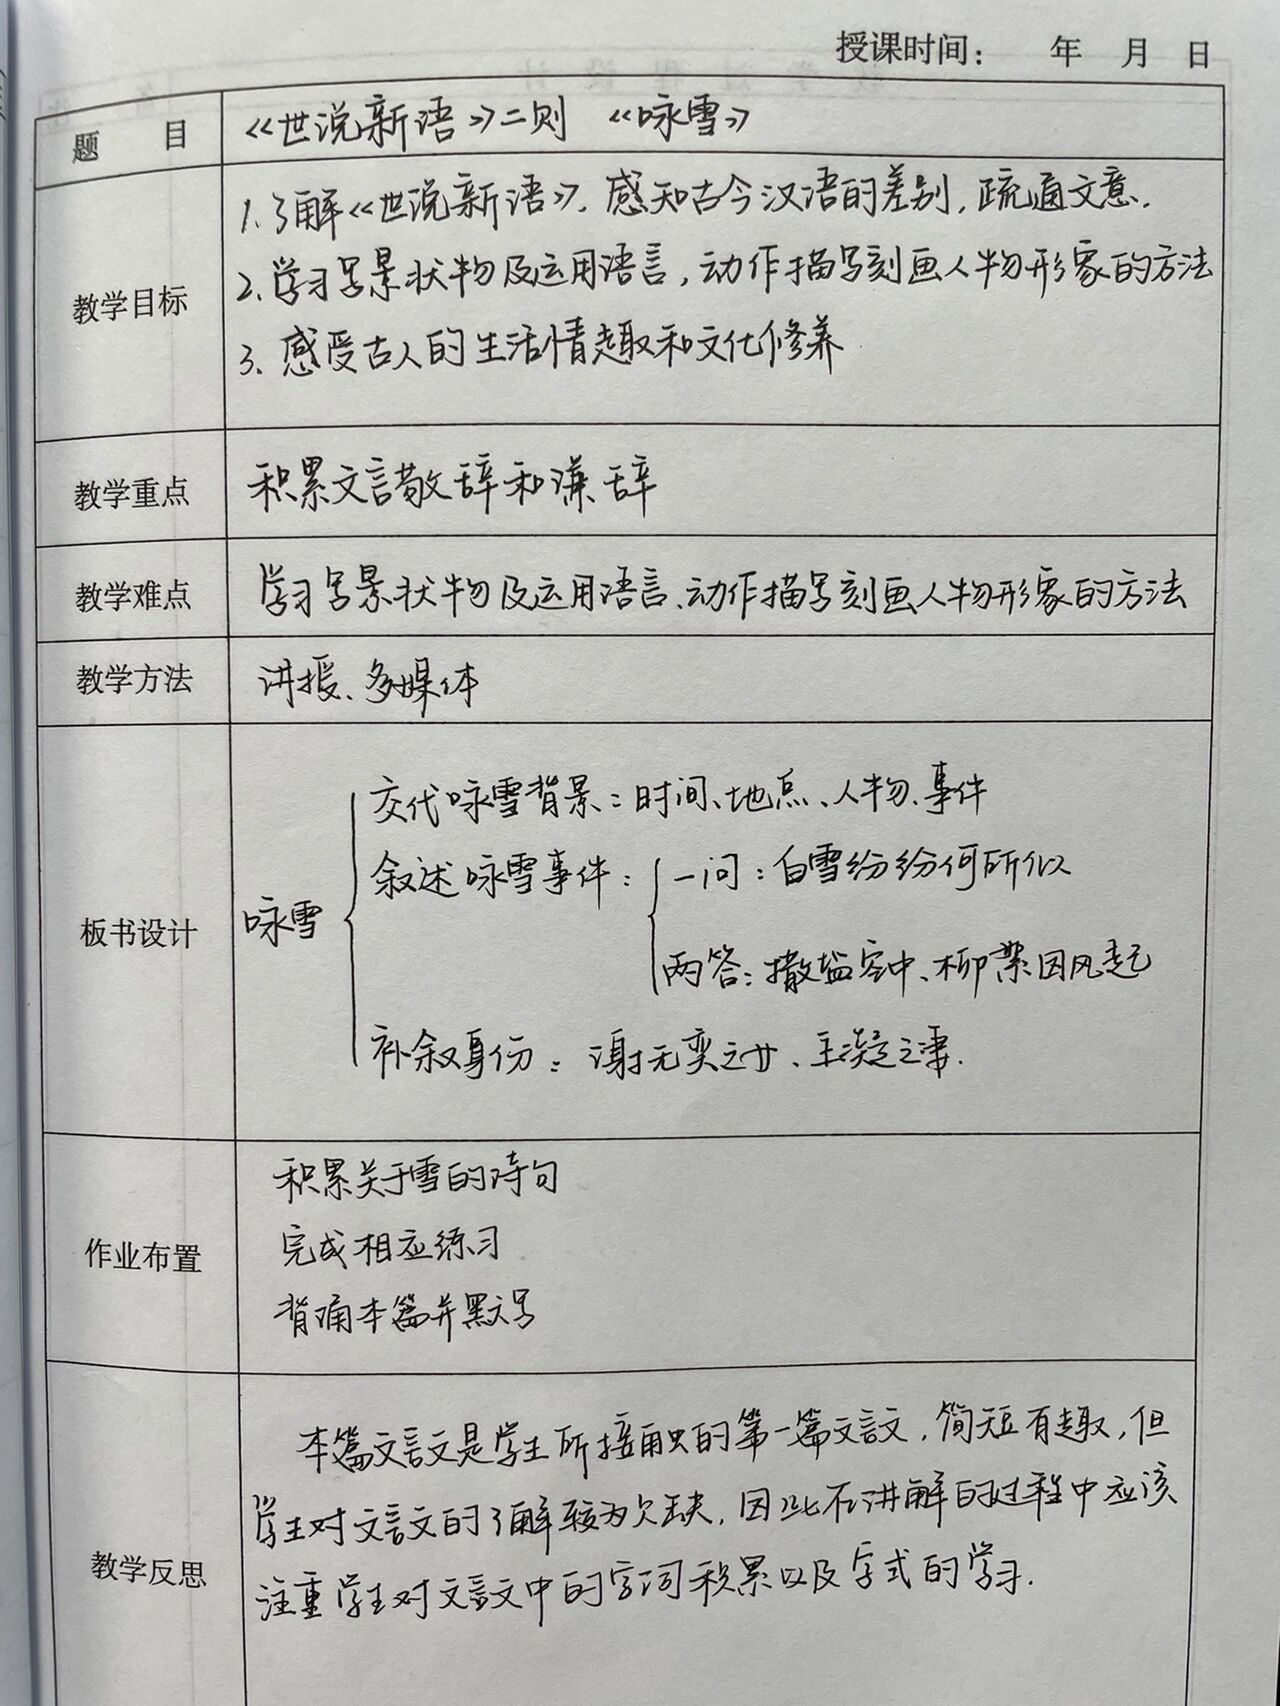 授课时间： 年 月 日
题 目 《世说新语》二则 《咏雪》
教学目标
1.了解《世说新语》，感知古今汉语的差别，疏通文意.
2.学习写景状物及运用语言，动作描写刻画人物形象的方法
3.感受古人的生活情趣和文化修养
教学重点 积累文言敬辞和谦辞
教学难点 学习写景状物及运用语言、动作描写刻画人物形象的方法
教学方法 讲授、多媒体
板书设计
咏雪
交代咏雪背景：时间、地点、人物、事件
叙述咏雪事件：
一问：白雪纷纷何所似
两答：撒盐空中、柳絮因风起
补叙身份：谢无奕之女、王凝之妻.
作业布置
积累关于雪的诗句
完成相应练习
背诵本篇并默写
教学反思
本篇文言文是学生所接触的第一篇文言文，简短有趣，但
学生对文言文的了解较为欠缺，因此在讲解的过程中应该
注重学生对文言文中的字词积累以及字式的学习.